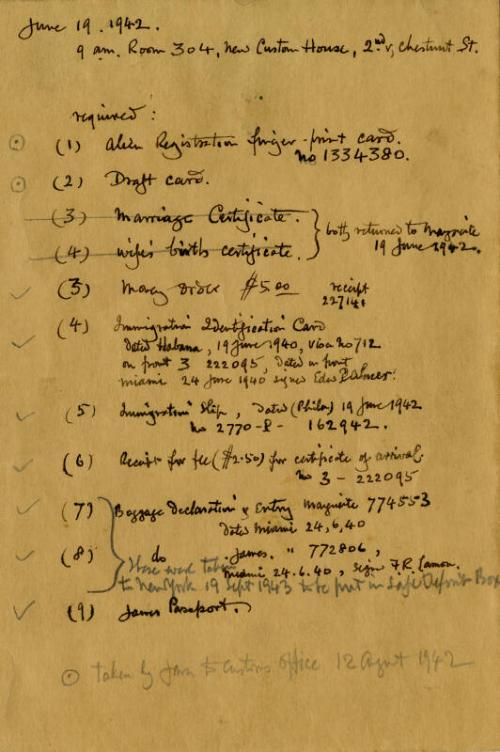 June 19. 1942.
9 am. Room 304, New Custom House, 2nd, Chestnut St.
required:
(1) Alien Registration finger-print card.
no 1334380.
(2) Draft card.
(3) Marriage Certificate.
(4) wife's birth certificate.
both returned to Marguerite
19 June 1942.
(3) Money order $5.00 receipt
227141
(4) Immigration Identification Card
Dated Habana, 19 June 1940, visa no 712
on front 3 222095, dated in front
Miami 24 June 1940 signed
(5) Immigration Slip, Dated (Phila) 19 June 1942
no 2770-P- 162942.
(6) Receipt for fee ($2.50) for certificate of arrival.
no 3 - 222095
(7) Baggage Declaration & Entry Marguerite 774553
Dated Miami 24,6,40
(8) do James. " 772806,
Miami 24.6.40, sign F.R. Camon.
These were taken
to New York 19 Sept 1943 to be put in Safe Deposit Box
(9) James Passport.
taken by James to Customs office 12 August 1942